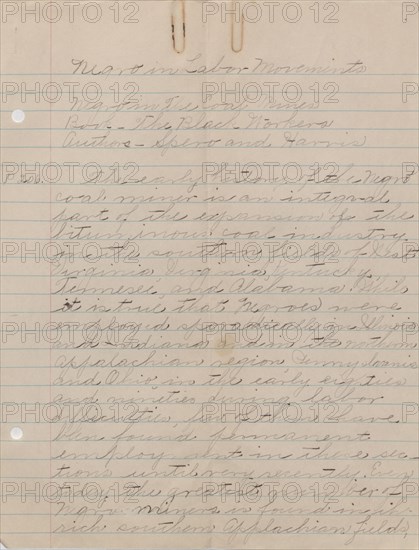 Negro in Labor Movements
Negro in The Coal Mines
Book - The Black Workers
Author - Spero and Harris
The early history of the Negro
coal miner is an integral
part of the expansion of the
bituminous coal industry
in the southern fields of West
Virginia Virginia, Kentucky
Tennesee, and Alabama. While
it is true that Negroes were
employed sporadically in Illinois
and Indiana and in the northern
Appalachian region, Pennsylvania
and Ohio, in the early eighties
and nineties during labor
difficulties, few of them have
been found permanent
employment in these sec-
tions until very recently. Even
today the greatest number of
Negro miners is found in the
rich southern Applachian fields,
PHOTO12